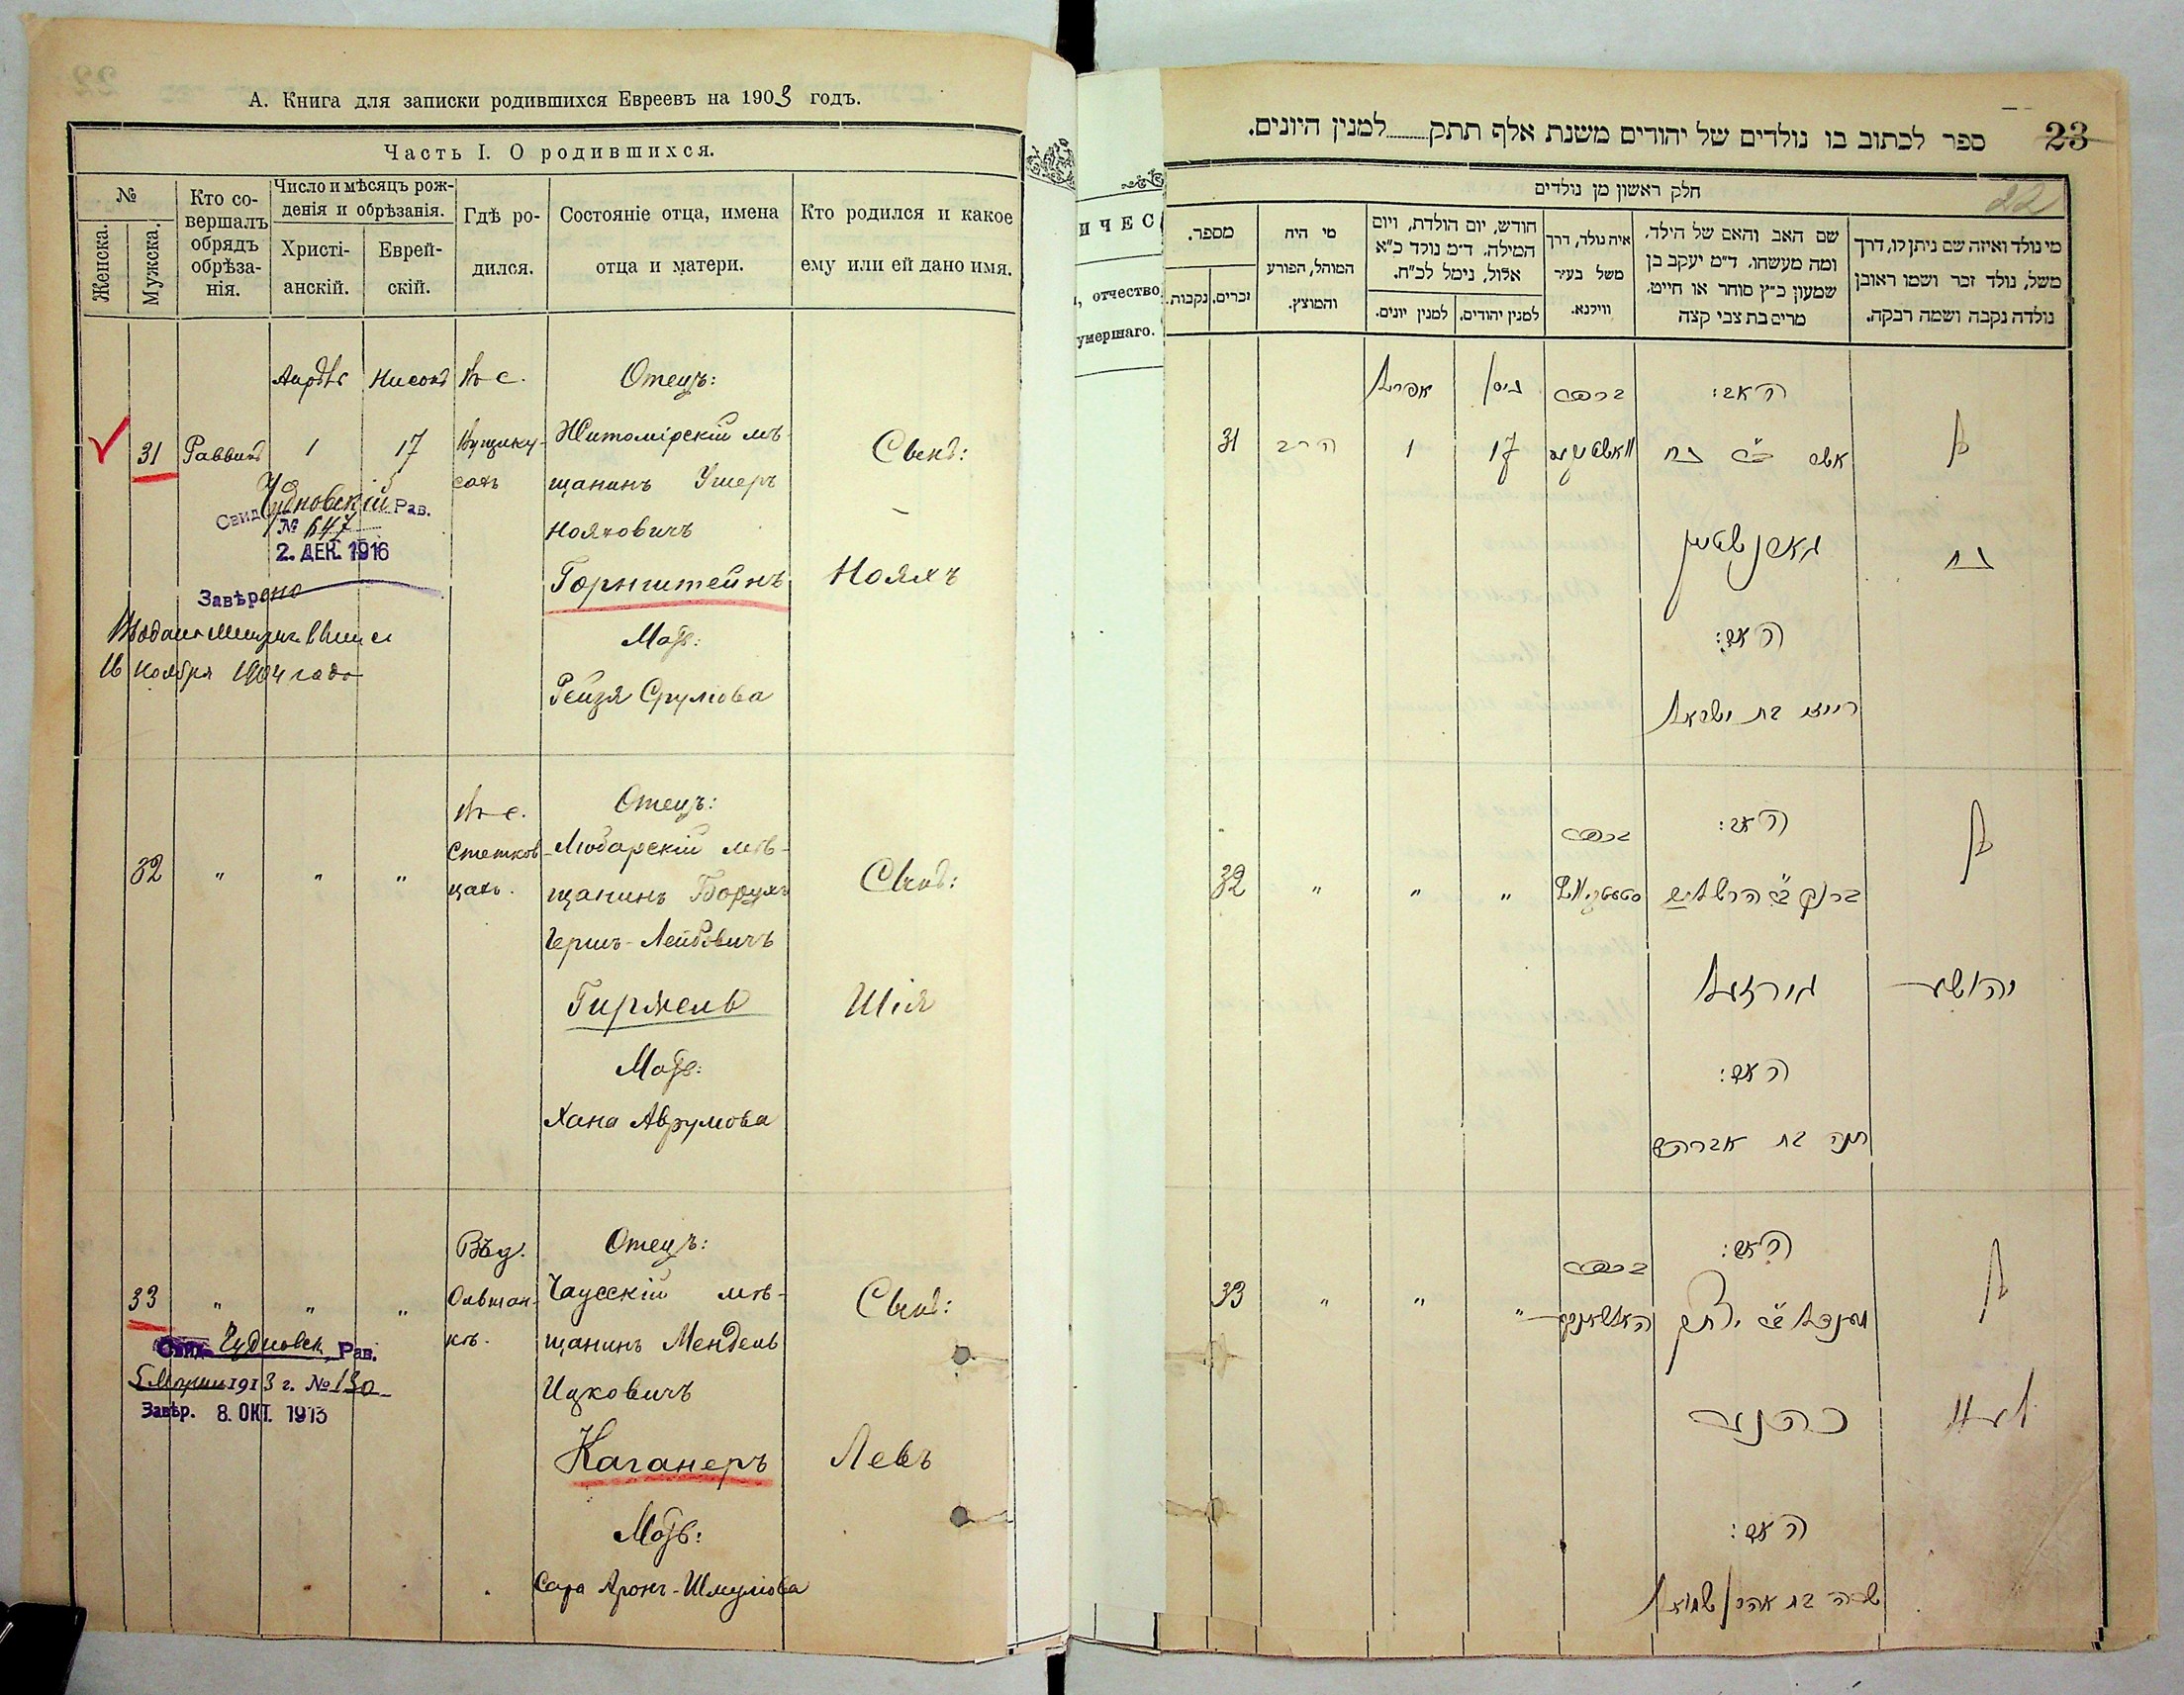 А. Книга для записки родившихся Евреевъ на 1903 годъ.
Часть I. О родившихся.
№
Женска.
Мужска.
Кто со-
вершалъ
обрядъ
обрѣза-
нія.
Число и мѣсяцъ рож-
денія и обрѣзанія.
Христі-
анскій.
Еврей-
скій.
Гдѣ ро-
дился.
Состояніе отца, имена
отца и матери.
Кто родился и какое
ему или ей дано имя.
31
Раввинъ
1
17
Отецъ:
Житомірскій мѣ-
щанинъ Ушеръ
Нояховичъ
Горнштейнъ
Мать:
Рейзя Срулiова
Сынъ:
Нояхъ
Свид. Чудновскій Рав.
№ 647
2. ДЕК. 1916
Завѣрено
16 Ноября 1904 года
32
"
"
"
Отецъ:
Любарскій мѣ-
щанинъ Борухъ
Гершъ-Лейбовичъ
Гиржель
Мать:
Хана Аврумова
Сынъ:
Шія
33
"
"
"
Ольшан-
кѣ.
Отецъ:
Чаусскій мѣ-
щанинъ Мендель
Ицковичъ
Каганеръ
Мать:
Сара Аронъ-Шмулiова
Сынъ:
Левъ
Чудновск. Рав.
1913 г. № 130
Завѣр. 8. ОКТ. 1913
ИЧЕС
, отчество
умершаго.
23
ספר לכתוב בו נולדים של יהודים משנת אלף תתק למנין היונים.
22
חלק ראשון מן נולדים
מי נולד ואיזה שם ניתן לו, דרך
משל, נולד זכר ושמו ראובן
נולדה נקבה ושמה רבקה.
שם האב והאם של הילד,
ומה מעשהו. ד״מ יעקב בן
שמעון כ״ץ סוחר או חייט,
מרים בת צבי קצה
איה נולד, דרך
משל בעיר
ווילנא.
חודש, יום הולדת, ויום
המילה. ד״מ נולד כ״א
אלול, נימל לכ״ח.
למנין יהודים.
למנין יונים.
מי היה
המוהל, הפורע
והמוצץ.
מספר.
זכרים.
נקבות.
בן
נח
האב:
אשר ב״ר נח
גארנשטיין
האם:
רייזי בת ישראל
בכפר
ניסן
17
אפריל
1
הרב
31
בן
יהושע
האב:
ברוך ב״ר הרש ליב
גירזעל
האם:
חנה בת אברהם
בכפר
"
"
"
32
בן
לעוו
מענדל ב״ר יצחק
כהנער
האם:
שרה בת אהרן שמואל
בכפר
"
"
"
33